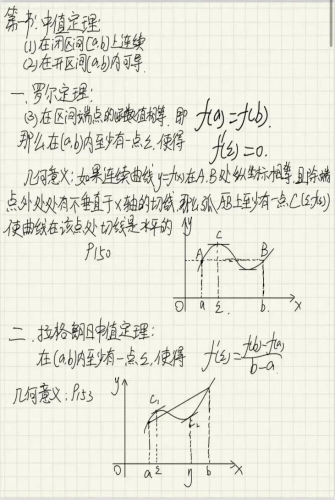 第一书:中值定理:
(1)在闭区间[a,b]上连续
(2)在开区间(a,b)内可导.
一.罗尔定理:
(3)在区间端点的函数值相等.即 f(a)=f(b).
那么在(a,b)内至少有一点ξ,使得 f'(ξ)=0.
几何意义:如果连续曲线y=f(x)在A.B处纵坐标相等.且除端
点外处处有不垂直于x轴的切线,那么弧AB上至少有一点C(ξ,f(ξ))
使曲线在该点处切线是水平的
P150
y
A C B
0 a ξ b x
二.拉格朗日中值定理:
在(a,b)内至少有一点ξ,使得 f'(ξ)=f(b)-f(a)/b-a
几何意义:P153
y
C1
C2
0 a ξ η b x